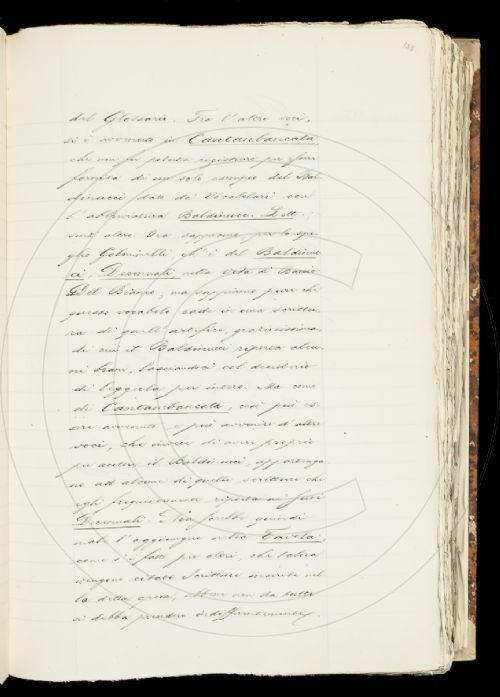 133
del Glossario. Tra l'altre voci,
si è avvenuto in Cantambancata
che non fu potuta registrare per
formata di un solo esempio del Bal
dinucci dato da' Vocabolari con
l'abbreviatura Baldinucc. Lett.;
senz'altro. Ora sappiamo per lo spo
glio Gelmisetti ch'è del Baldinuc
ci, Decennali nella Vita di Baccio
Del Bianco; ma sappiamo pure che
questo vocabolo cade in una scrittu
ra di quell'artefice, graziosissima,
di cui il Baldinucci riporta alcu
ni brani, lasciandoci col desiderio
di leggerla per intero. Ma come
di Cantambancata, così può es
sere avvenuto e può avvenire d'altre
voci, che invece di aver proprio
per autore il Baldinucci, appartenga
no ad alcune di quelle scritture che
egli frequentemente riporta ne' suoi
Decennali. Non sarebbe quindi
male l'aggiungere nella Tavola,
come s'è fatto per altri, che talora
vengono citate Scritture inserite nel
la detta opera, ebbene non da tutti
si debba prendere indifferentemente.